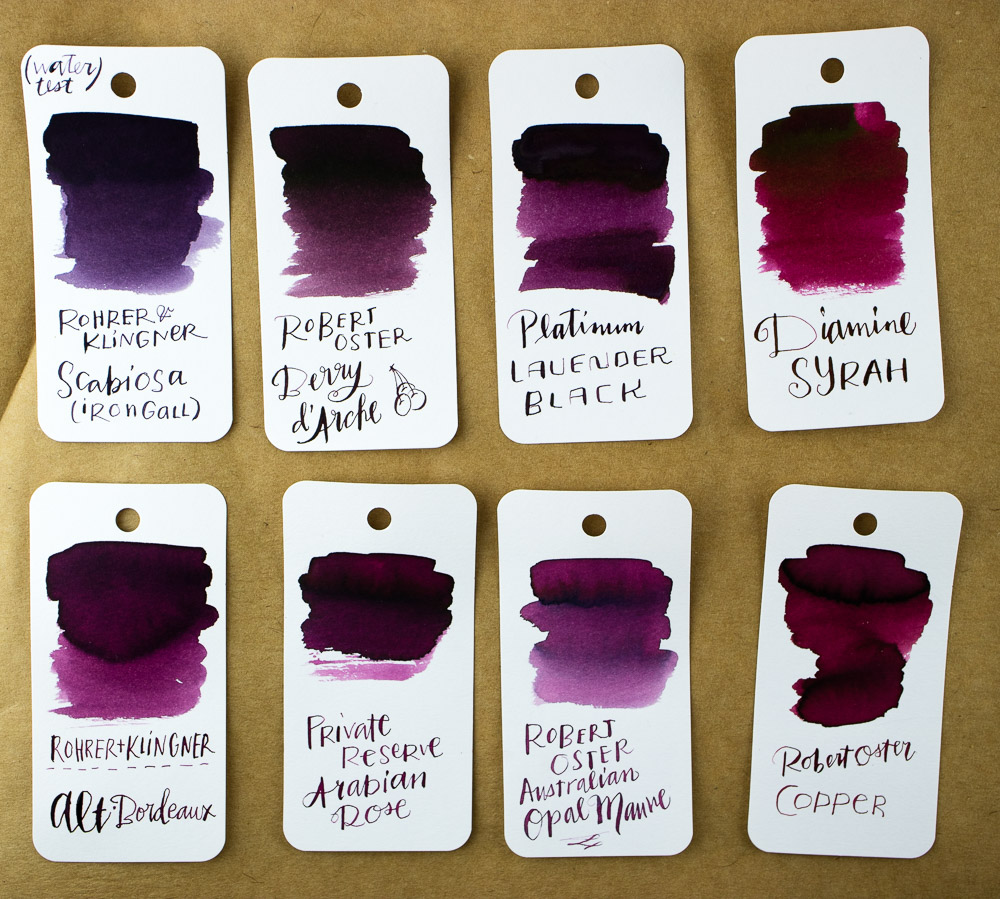 (water)
test
ROHRER &
KLINGNER
Scabiosa
(iRON GALL)
RoBERT
OSTER
Berry
d'Arche
Platinum
LAVENDER
BLACK
Diamine
SYRAH
ROHRER+KLiNGNER
Alt-Bordeaux
Private
RESERVE
Arabian
Rose
ROBERT
OSTER
Australian
Opal Mauve
Robert Oster
COPPER